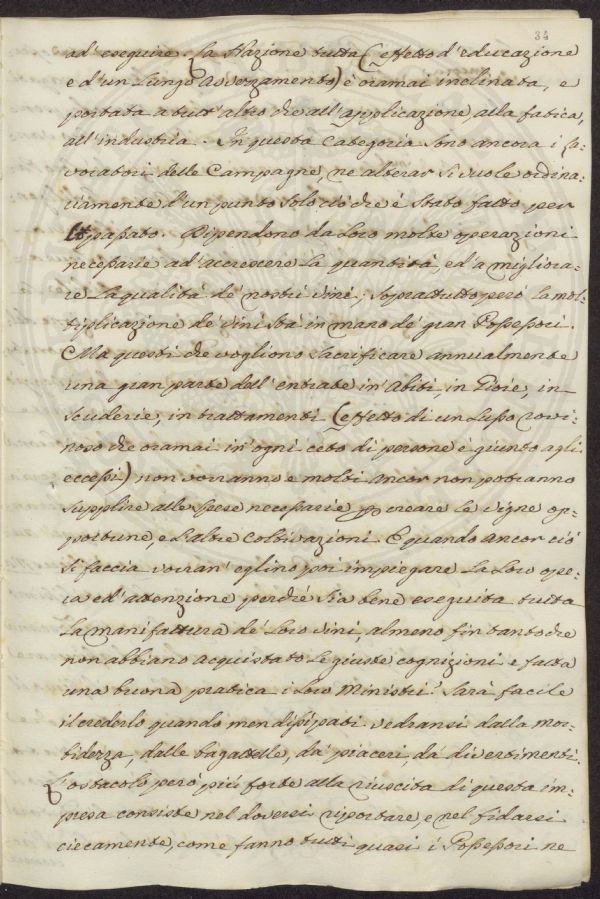 34
ad' eseguire. La Nazione tutta (effetto d'educazione
e d'un Lungo Avvezzamento) è oramai inclinata, e
portata a tutt'altro che all'applicazione, alla fatica,
all'industria. In questa Categoria sono ancora i La=
voratori delle Campagne, ne alterar si vuole ordina=
riamente d'un punto solo ciò che è stato fatto per
passato. Dipendono da Loro molte operazioni
necessarie ad'accrescere La quantità, ed'a migliora=
re La qualità de' nostri Vini; sopratutto però la mol=
tiplicazione de' Vini stà in mano de' gran Possessori.
Ma questi che vogliono sacrificare annualmente
una gran parte dell'entrate in'Abiti, in Gioie, in
Scuderie, in trattamenti (effetto di un Lusso rovi=
noso che oramai in'ogni ceto di persone è giunto agli
eccessi) non vorranno e molti ancor non potranno
supplire alle spese necessarie per creare le vigne op=
portune, e L'altre Coltivazioni. E quando ancor ciò
si faccia vorran' eglino poi impiegare La Loro ope=
ra ed'attenzione perché sia bene eseguita tutta
La manifattura de' Loro Vini, almeno fin tanto che
non abbiano acquistato Le giuste cognizioni e fatta
una buona pratica i Loro Ministri? Sarà facile
il crederlo quando men dissipati vedransi dalla mor=
bidezza, dalle bagattelle, da' piaceri, da' divertimenti.
L'ostacolo però più forte alla riuscita di questa im=
presa consiste nel doversi riportare, e nel fidarsi
ciecamente, come fanno tutti quasi i Possessori ne